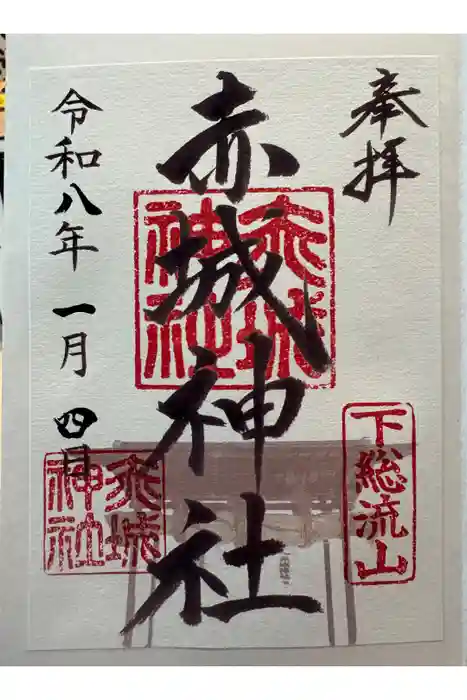 奉拝
下総流山
赤城神社
赤城神社
令和八年 一月 四日
赤城神社